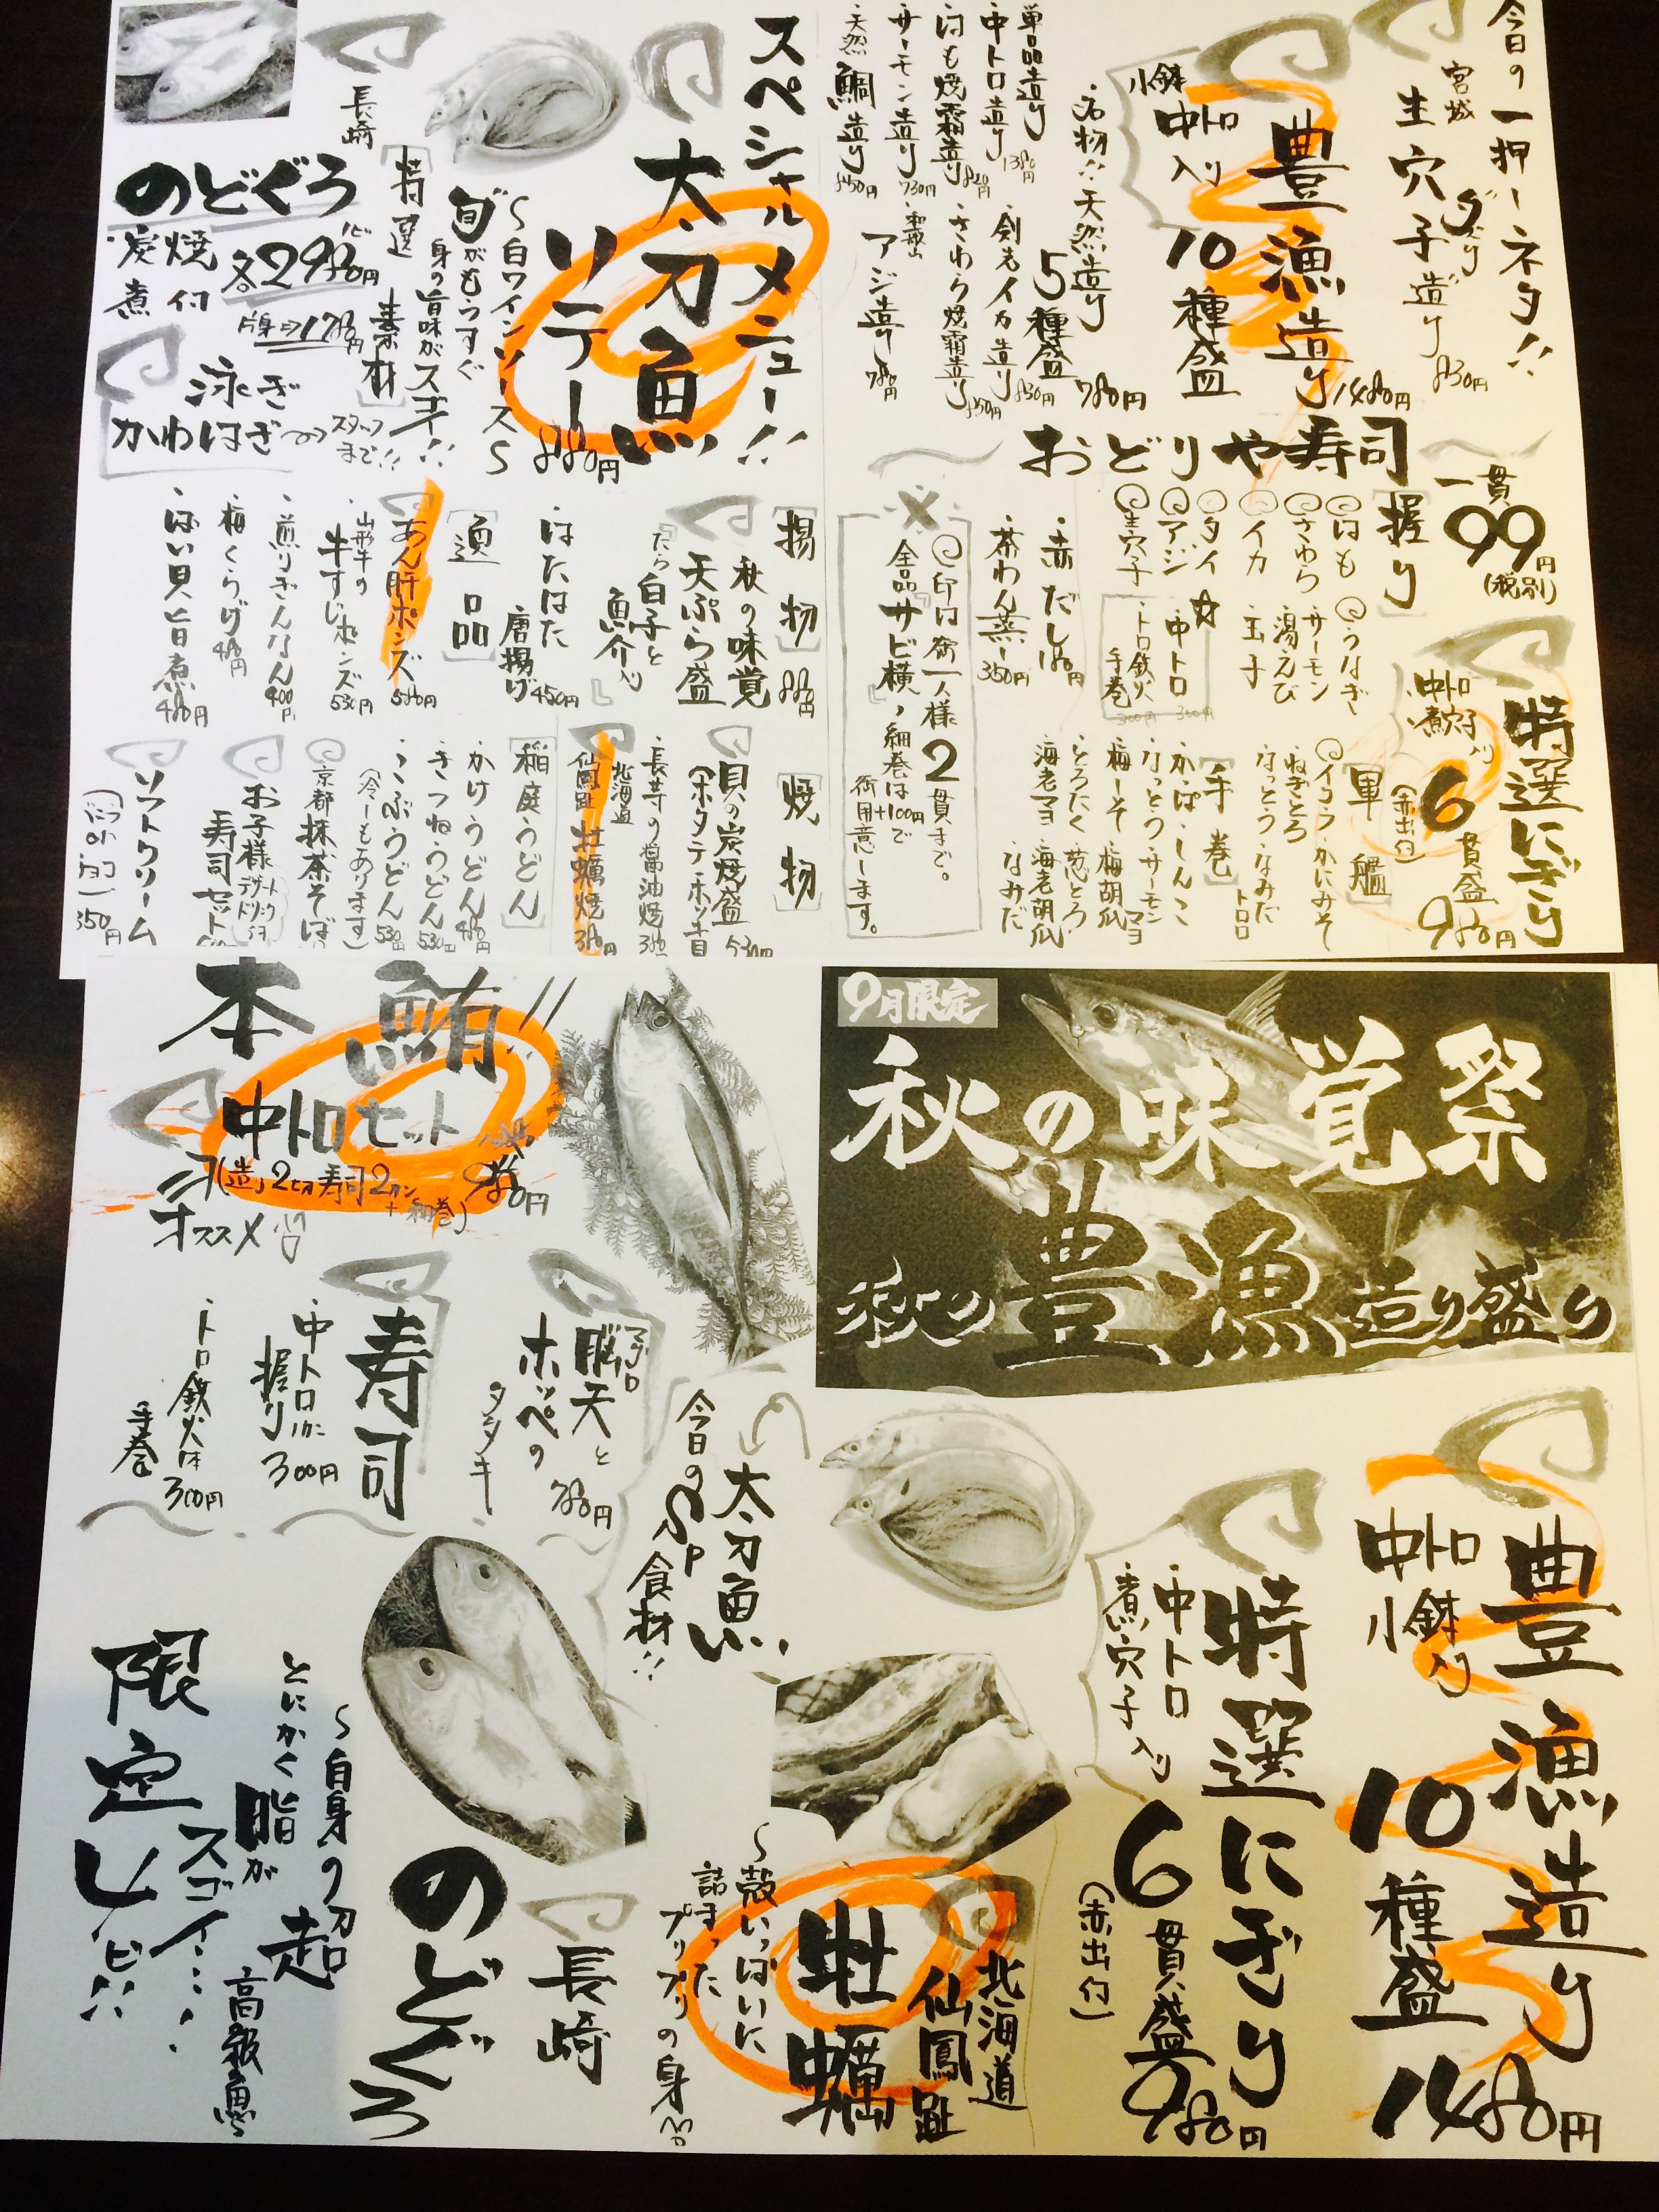 今日の一押しネタ!!
宮城
生穴子造り
830円
豊漁造り
小鉢
中トロ
入り
10種盛
1480円
名物!!天然造り
5種盛
780円
単品造り
中トロ造り
1380円
はも焼霜造り
サーモン造り
730円
天然鯛造り
850円
剣先イカ造り
830円
さわら焼霜造り
850円
和歌山
アジ造り
780円
おどりや寿司
一貫
99円
(税別)
握り
はも
うなぎ
さわら
サーモン
イカ
湯えび
タイ
玉子
アジ
中トロ
300円
生穴子
トロ鉄火
手巻
300円
赤だし
180円
茶わん蒸し
350円
◎印は御一人様2貫まで。
全品『サビ横』、細巻は+100円で
御用意します。
特選にぎり
中トロ
煮穴子入り
6貫盛
(赤出付)
980円
軍艦
イクラ
かにみそ
ねぎとろ
なっとう
なみだトロロ
手巻
かっぱ
しんこ
なっとう
サーモンマヨ
梅しそ
梅胡瓜
とろたく
葱とろ
海老マヨ
海老胡瓜
なみだ
スペシャルメニュー!!
太刀魚
ソテー
880円
~白ワインソース~
旬がもうすぐ
身の旨味がスゴイ!!
[特選素材]
長崎
のどぐろ
焼付
炭煮
各2980円
片身は1780円
泳ぎ
かわはぎ
スタッフまで!!
[揚物]
秋の味覚
天ぷら盛
880円
『たら白子と
魚介入り』
はたはた
唐揚げ
450円
[逸品]
あん肝ポンズ
580円
山形牛の
牛すじポンズ
530円
煎りぎんなん
400円
梅くらげ
480円
ばい貝旨煮
480円
[焼物]
貝の炭焼盛
(ホタテ・ホッキ・白
530円
長芋の醤油焼
380円
北海道
仙鳳趾
牡蠣焼
380円
[稲庭うどん]
かけうどん
480円
きつねうどん
530円
こぶうどん
530円
(冷しもあります)
京都抹茶そば
お子様
寿司セット
デザート
ドリンク
付
ソフトクリーム
350円
9月限定
秋の味覚祭
秋の豊漁造り盛り
本鮪!!
中トロセット
980円
(造り2切寿司2カン
+細巻)
オススメ
マグロ
脳天と
ホッペの
タタキ
780円
寿司
中トロ
握り
300円
トロ鉄火
手巻
300円
太刀魚
今日のSP食材!!
豊漁造り
中トロ
小鉢
入り
10種盛
1480円
特選にぎり
中トロ
煮穴子入り
6貫盛
(赤出付)
980円
北海道
仙鳳趾
牡蠣
~殻いっぱいに
詰まった
プリプリの身~
長崎
のどぐろ
~白身の超
高級魚
とにかく脂が
スゴイ…!
限定し